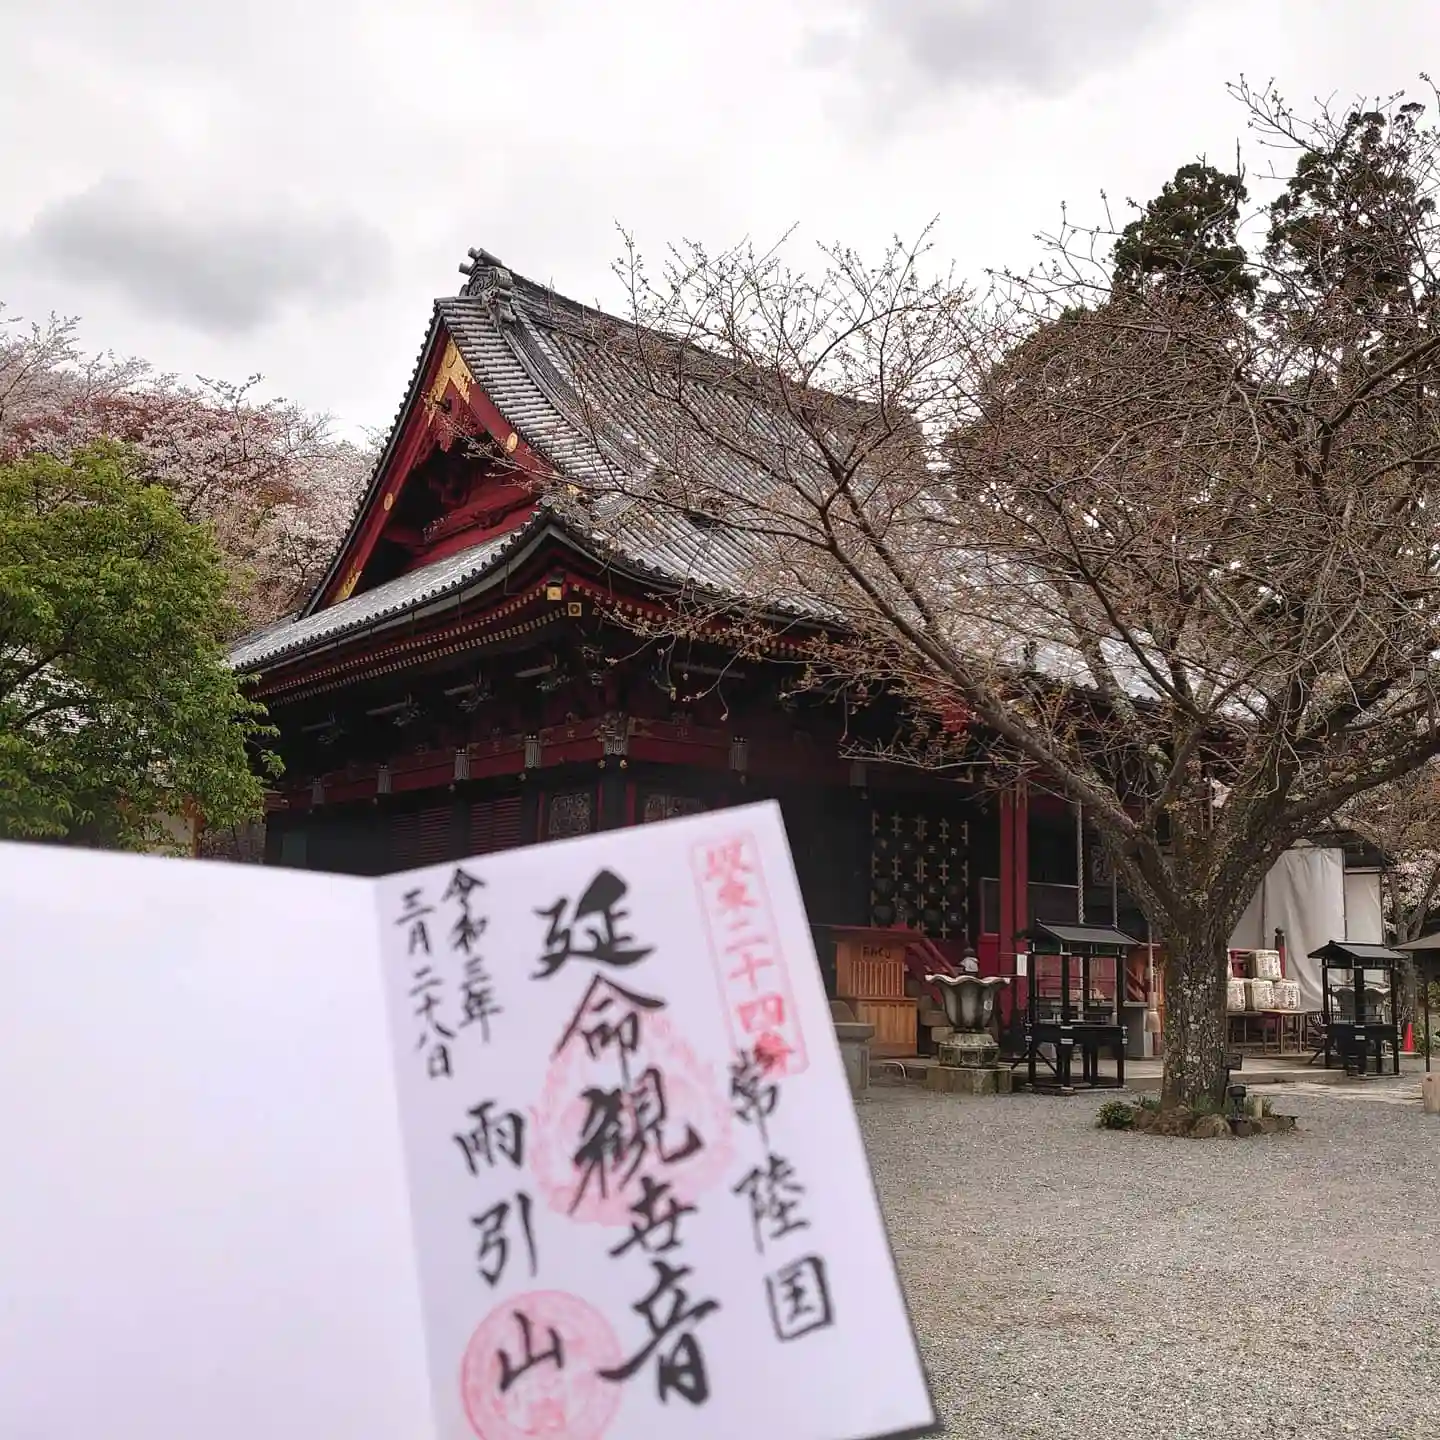 坂東二十四番
常陸国
延命観世音
雨引山
令和三年
三月二十八日